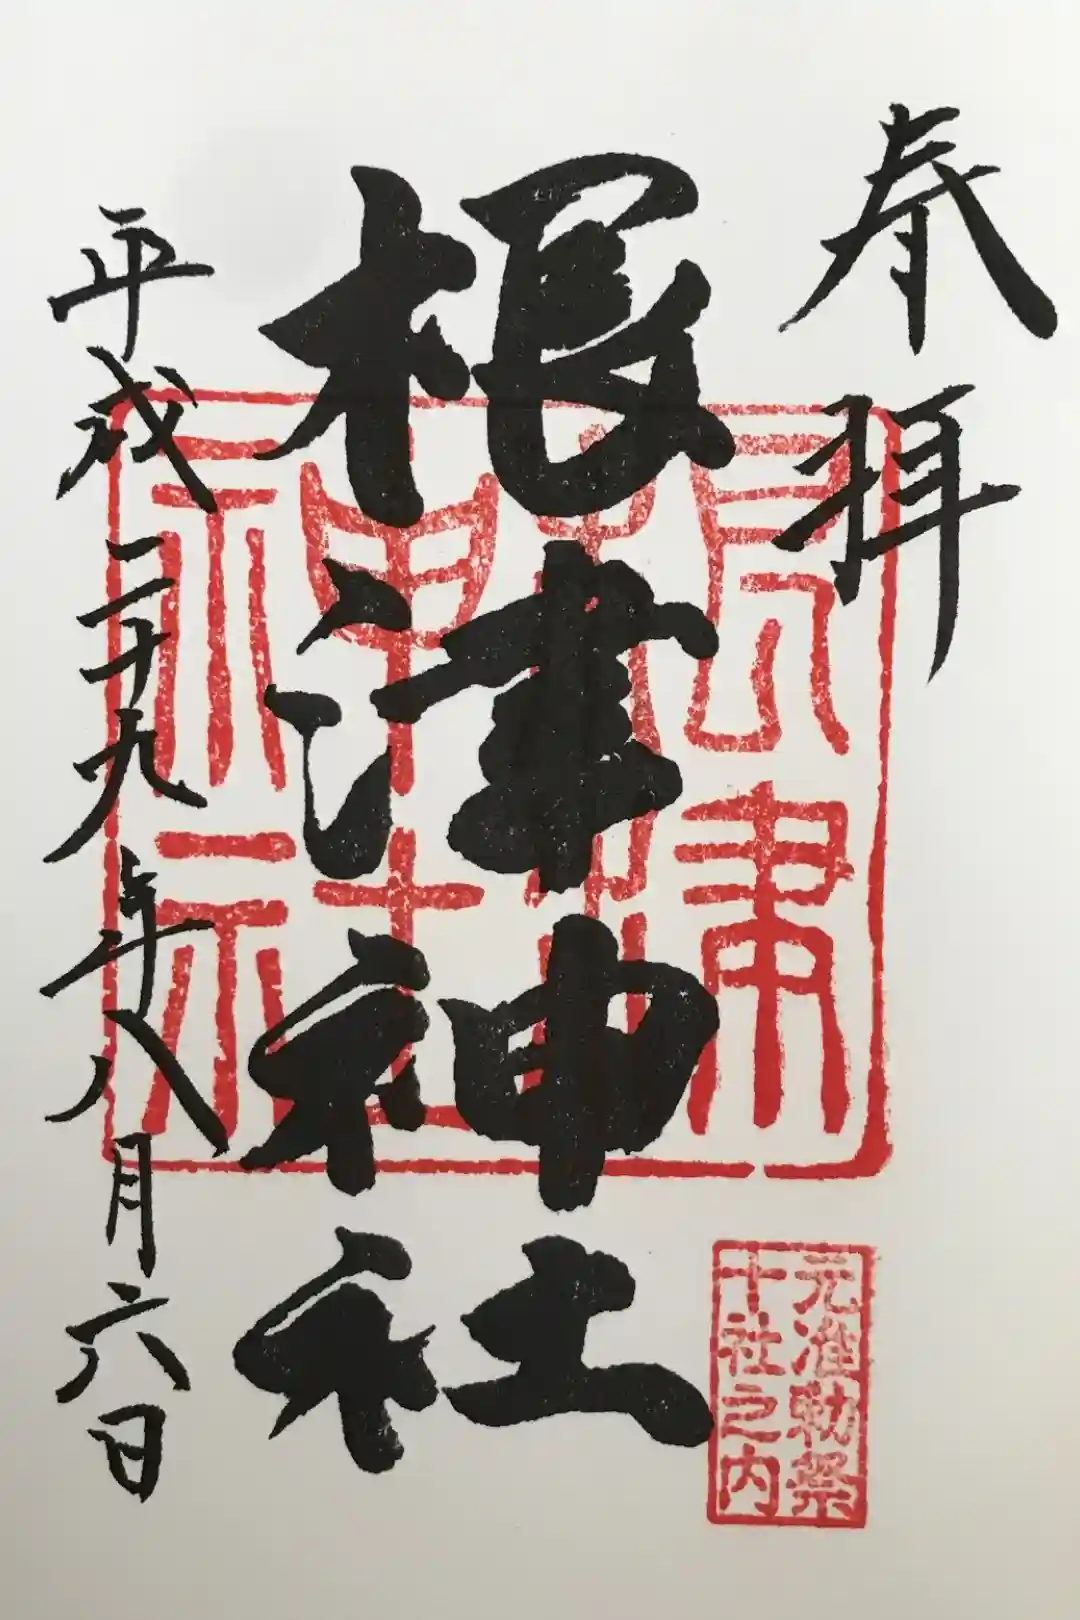 奉拝
根津神社
根津
神社
元准勅祭
十社之内
平成二十九年八月六日